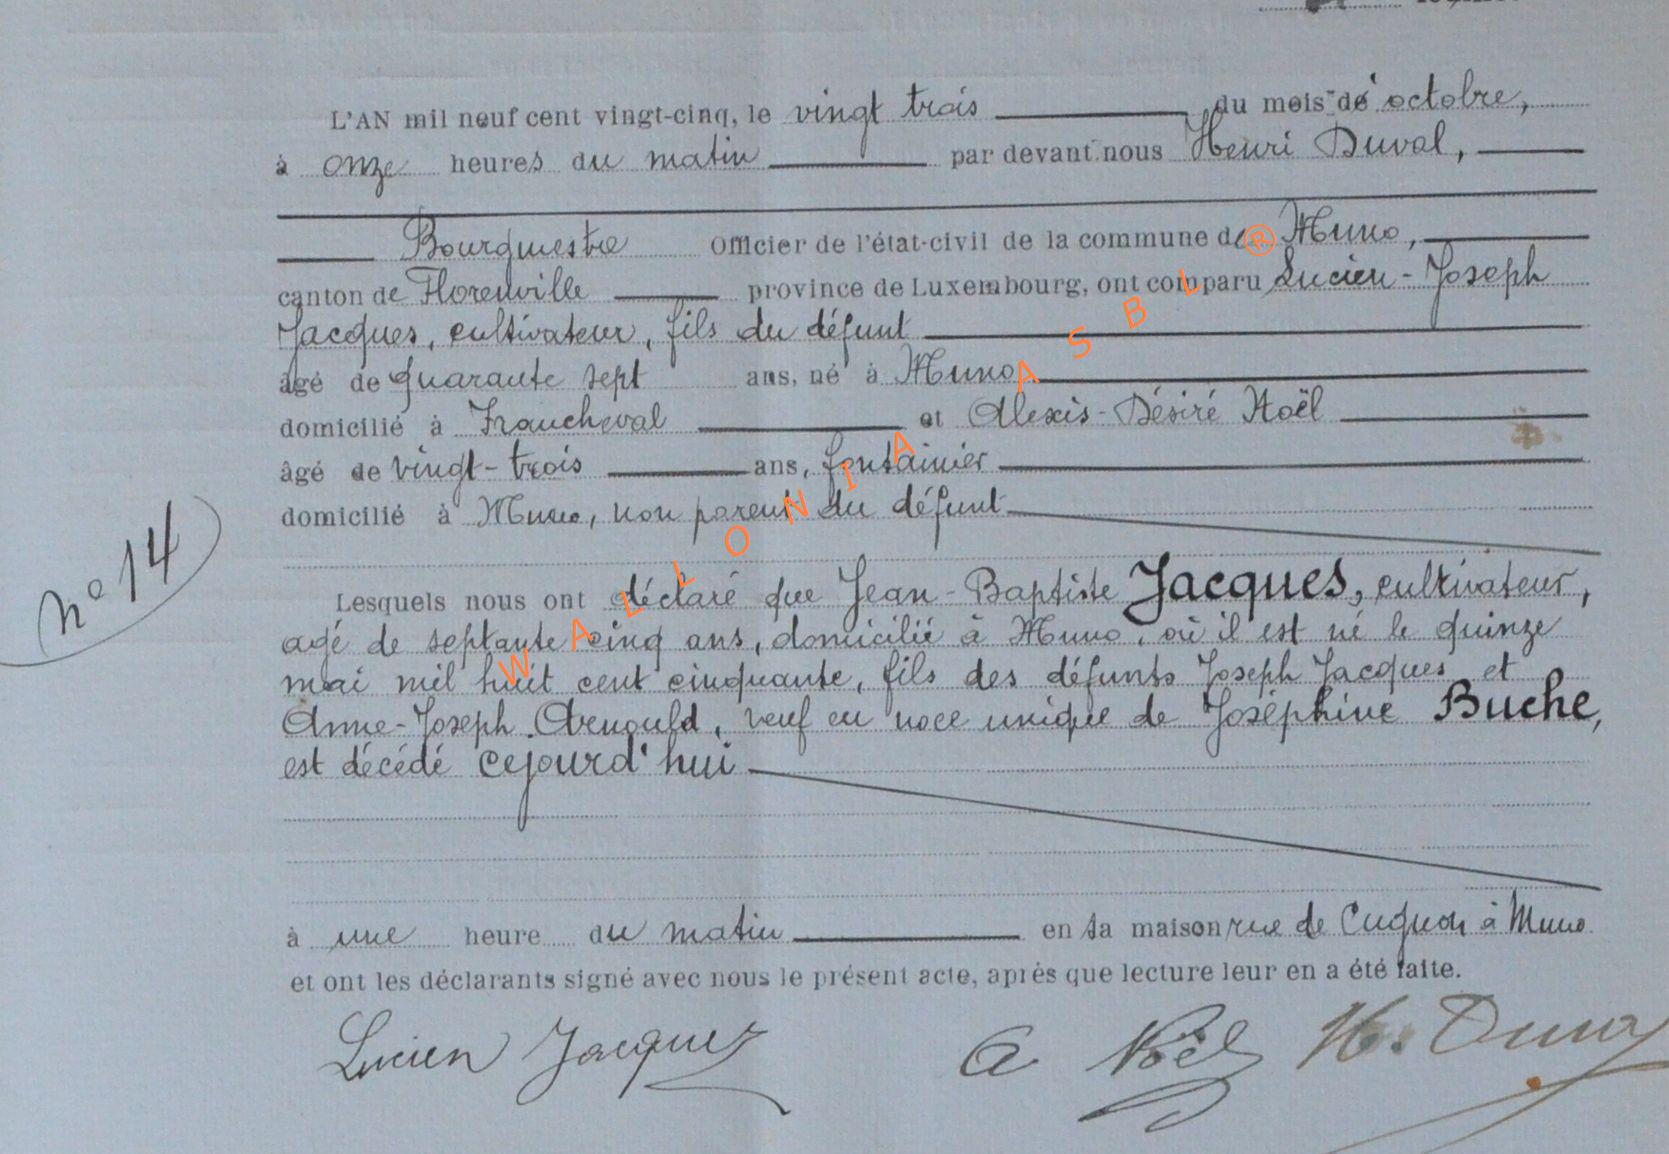 L'AN mil neuf cent vingt-cinq, le vingt trois du mois de octobre,
à onze heures du matin par devant nous Henri Duval,
Bourgmestre Officier de l'état-civil de la commune de Muno,
canton de Florenville province de Luxembourg, ont comparu Lucien-Joseph
Jacques, cultivateur, fils du défunt
âgé de quarante sept ans, né à Muno
domicilié à Francheval et Alexis-Désiré Noël
âgé de vingt-trois ans, fontainier
domicilié à Muno, non parent du défunt
n° 14
Lesquels nous ont déclaré que Jean-Baptiste Jacques, cultivateur,
agé de septante cinq ans, domicilié à Muno, où il est né le quinze
mai mil huit cent cinquante, fils des défunts Joseph Jacques et
Anne-Joseph Arnould, veuf en noce unique de Joséphine Buche,
est décédé cejourd'hui
à une heure du matin en sa maison rue de Cugnon à Muno
et ont les déclarants signé avec nous le présent acte, après que lecture leur en a été faite.
Lucien Jacques A Noël H. Duval
WALLONIA ASBL ®